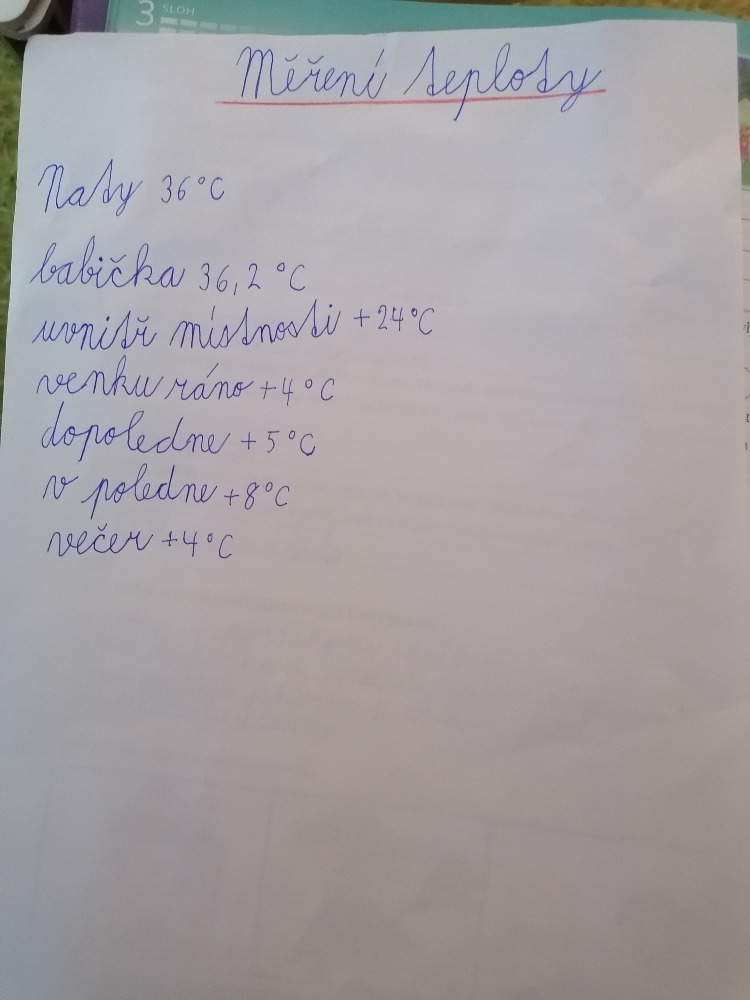 3 SLOH
Měření teploty
Naty 36°C
babička 36,2 °C
uvnitř místnosti +24°C
venku ráno +4°C
dopoledne +5°C
v poledne +8°C
večer +4°C